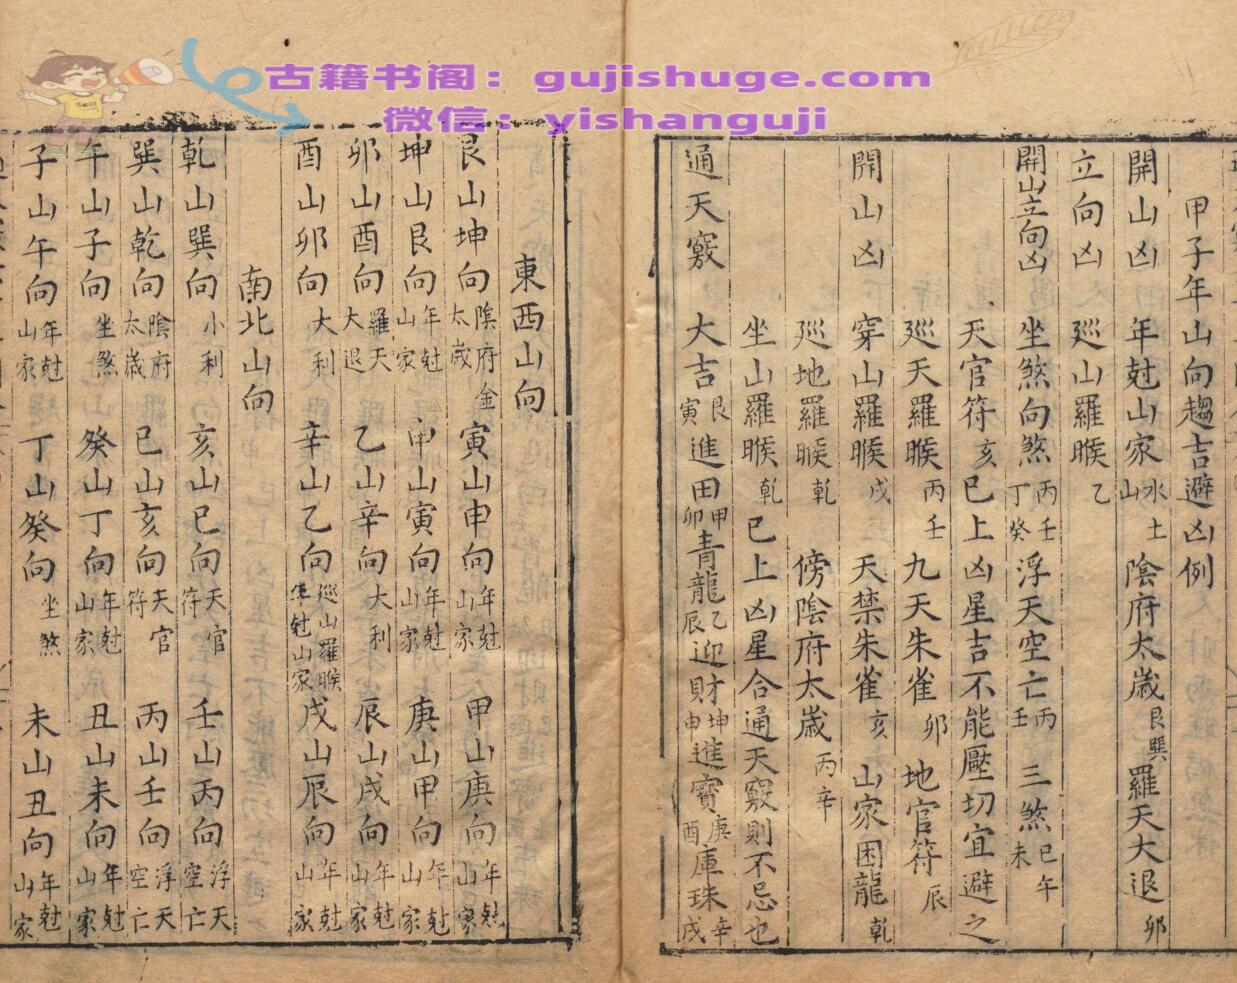 古籍书阁：gujishuge.com
微信：yishanguji
甲子年山向趨吉避凶例
開山凶 年尅山家水土山 陰府太歲艮巽 羅天大退卯
立向凶 廵山羅睺乙
開山立向凶 坐煞向煞丙壬丁癸 浮天空亡丙壬 三煞巳午未
天官符亥 已上凶星吉不能壓切宜避之
廵天羅睺丙壬 九天朱雀卯 地官符辰
開山凶 穿山羅睺戊 天禁朱雀亥 山家困龍乾
廵地羅睺乾 傍陰府太歲丙辛
坐山羅睺乾 已上凶星合通天竅則不忌也
通天竅 大吉艮寅 進田甲卯 青龍乙辰 迎財坤申 進寶庚酉 庫珠辛戌
東西山向
艮山坤向陰府太歲金 寅山申向年尅山家 甲山庚向年尅山家
坤山艮向年尅山家 申山寅向年尅山家 庚山甲向年尅山家
卯山酉向羅天大退 乙山辛向大利 辰山戌向年尅山家
酉山卯向大利 辛山乙向廵山羅睺年尅山家 戌山辰向年尅山家
南北山向
乾山巽向小利 亥山巳向天官符 壬山丙向浮天空亡
巽山乾向陰府太歲 巳山亥向天官符 丙山壬向浮天空亡
午山子向坐煞 癸山丁向年尅山家 丑山未向年尅山家
子山午向年尅山家 丁山癸向坐煞 未山丑向年尅山家